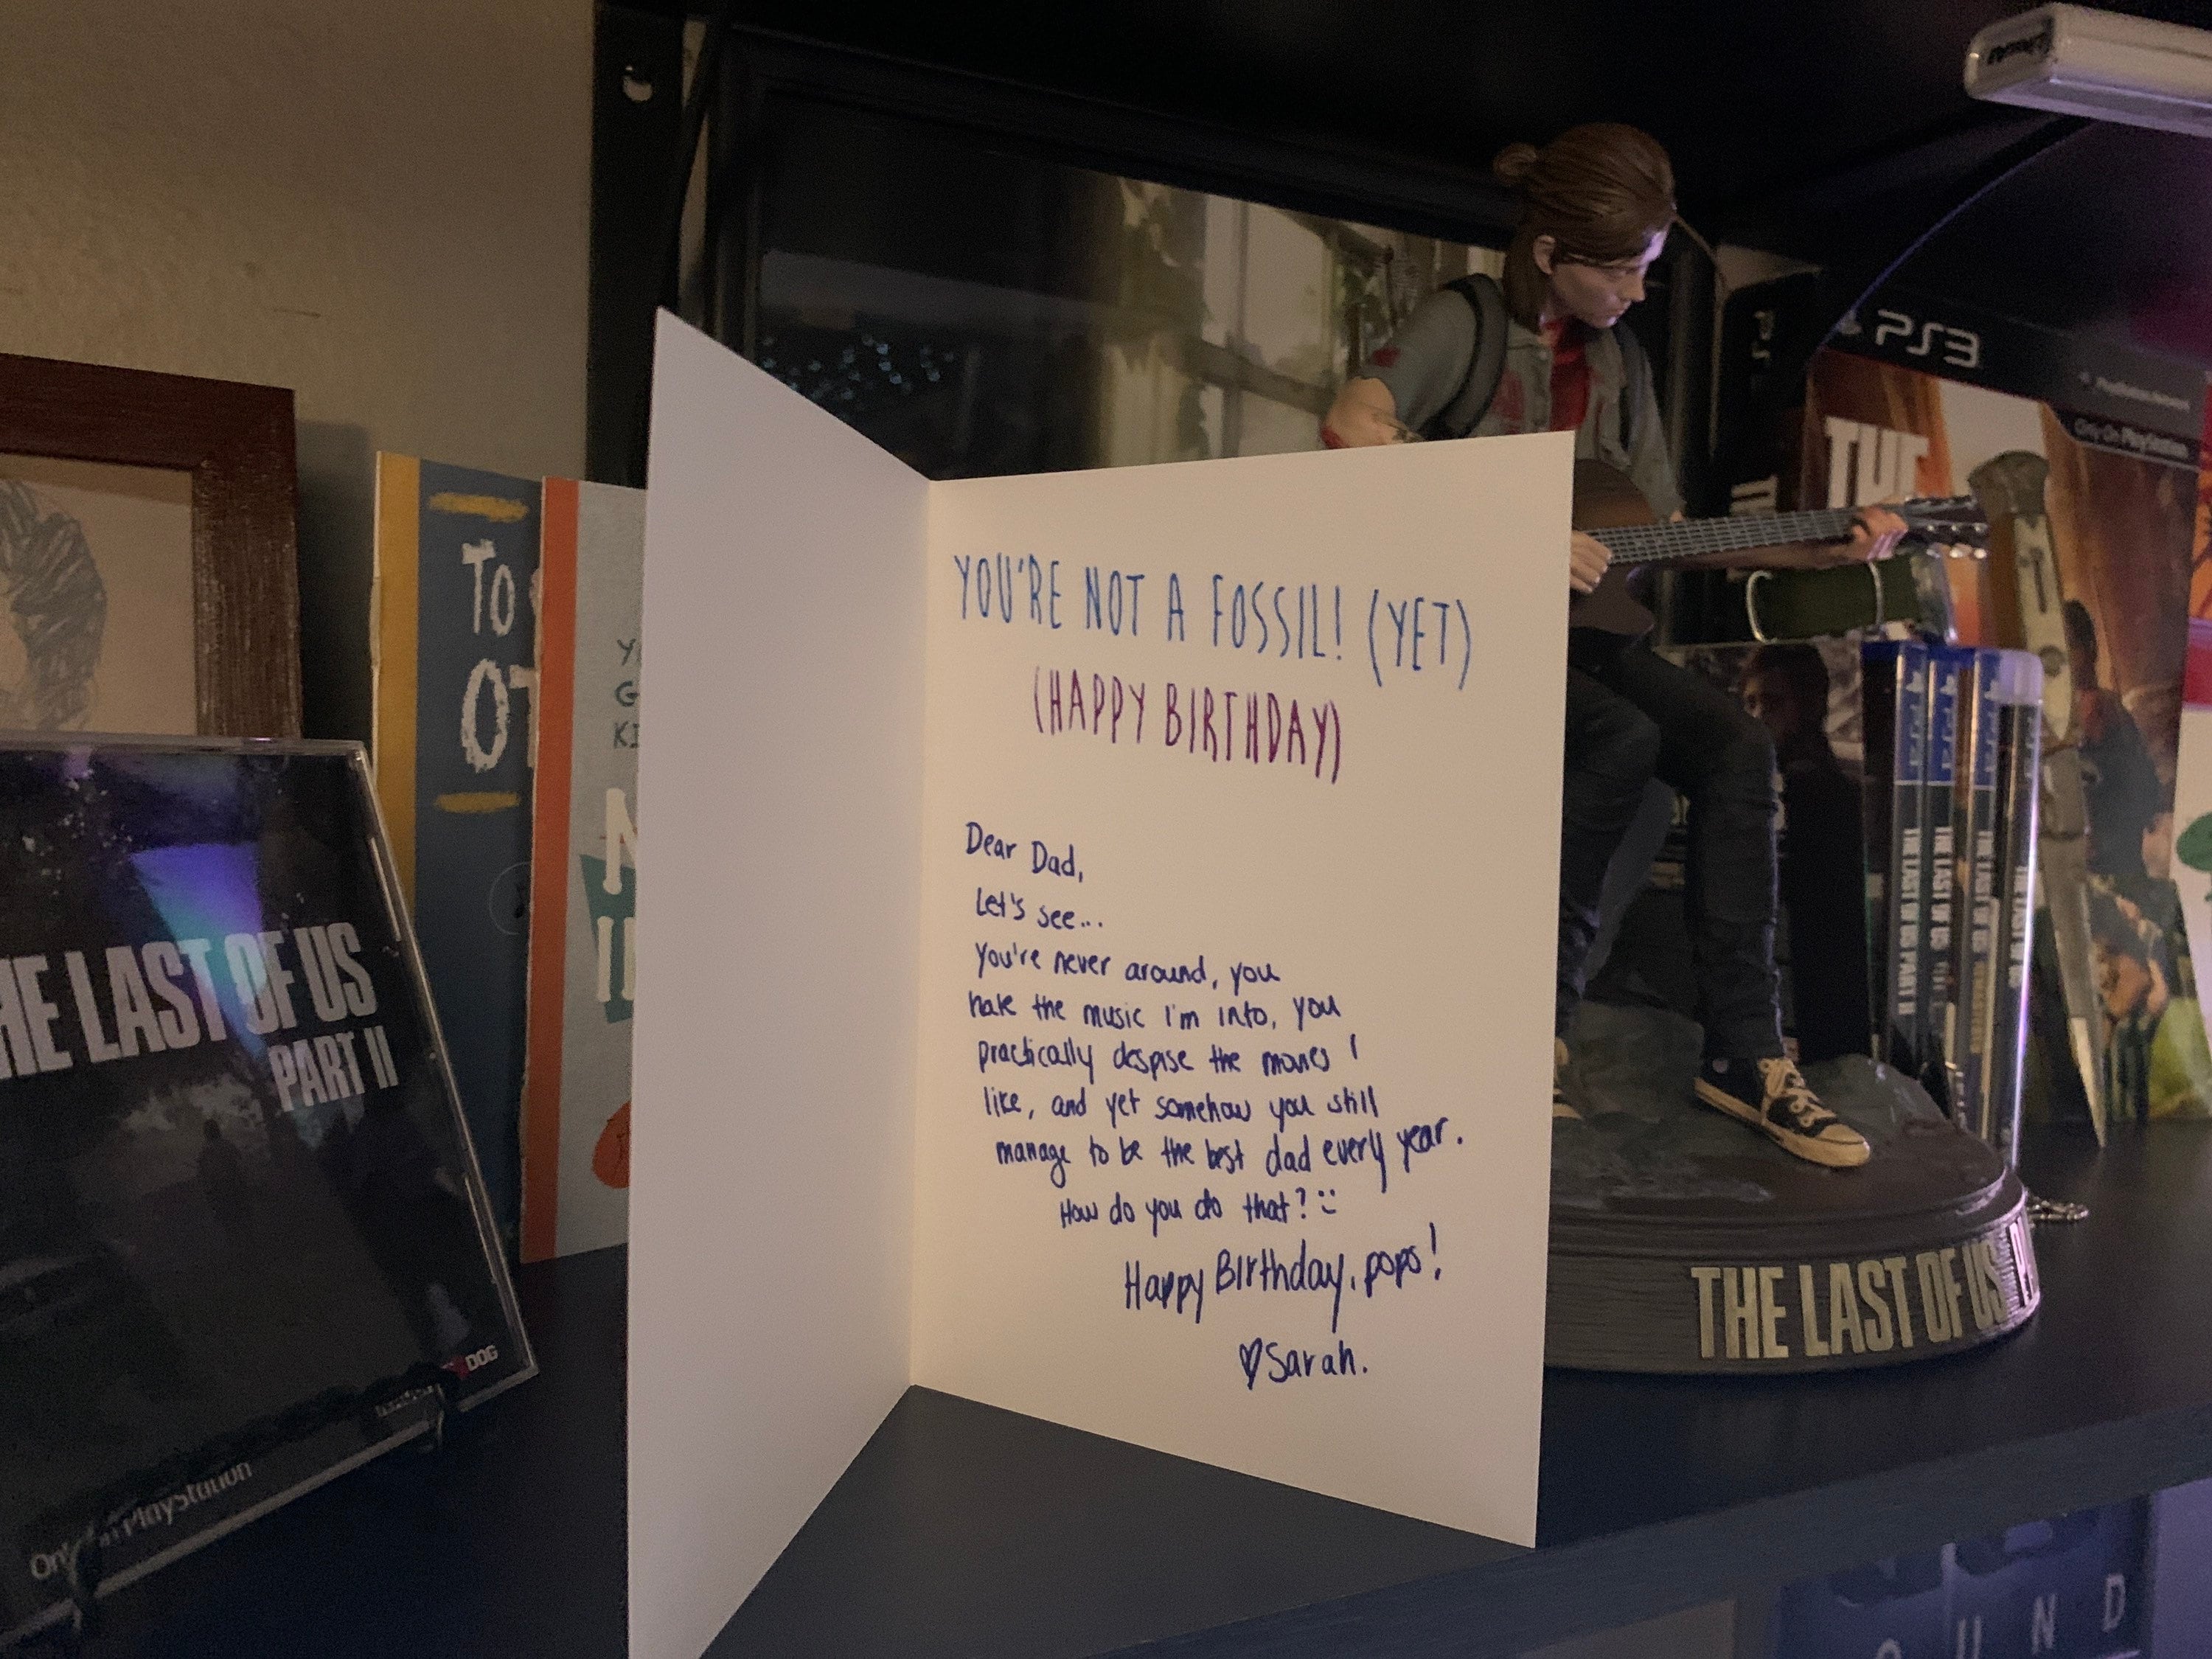 YOU'RE NOT A FOSSIL! (YET)
(HAPPY BIRTHDAY)
Dear Dad,
Let's see...
You're never around, you
hate the music I'm into, you
practically despise the movies I
like, and yet somehow you still
manage to be the best dad every year.
How do you do that? :)
Happy Birthday, pops!
♡Sarah.
TO
THE LAST OF US
PART II
DOG
PlayStation
PS3
Only On PlayStation
THE
THE LAST OF US PART II
THE LAST OF US
THE LAST OF US
THE LAST OF US
THE LAST OF US
UND